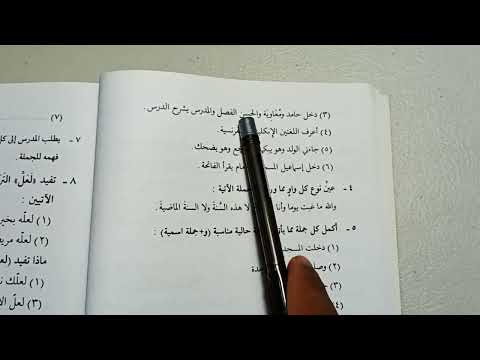 (٣) دخل حامد ومُعَاوِيَة والحسن الفصل والمدرس يشرح الدرس .
(٤) أعرف اللغتين
(٥) جاءني الولد وهو وهو يضحك.
(٦) دخل إسماعيل يقرأ الفاتحة.
٤ - عينْ نوع كل واوٍ مما الآتية :
والله ما غبت يوما وأنا لا هذه السَّنَةَ ولا السنة الماضيةَ.
٥ - أكمل كل جملة مما حالية مناسبة (و+جملة اسمية) :
(١) دخلت المسجد
(٢)
(٤)
(٧)
٧ - يطلب المدرس إلى كل
فهمه للجملة.
٨ - تفيد «لَعَلَّ»
الآتيين :
(١) لعلّه بخير
(٢) لعله
ماذا تفيد
(١) لعلك
(٣) لعل